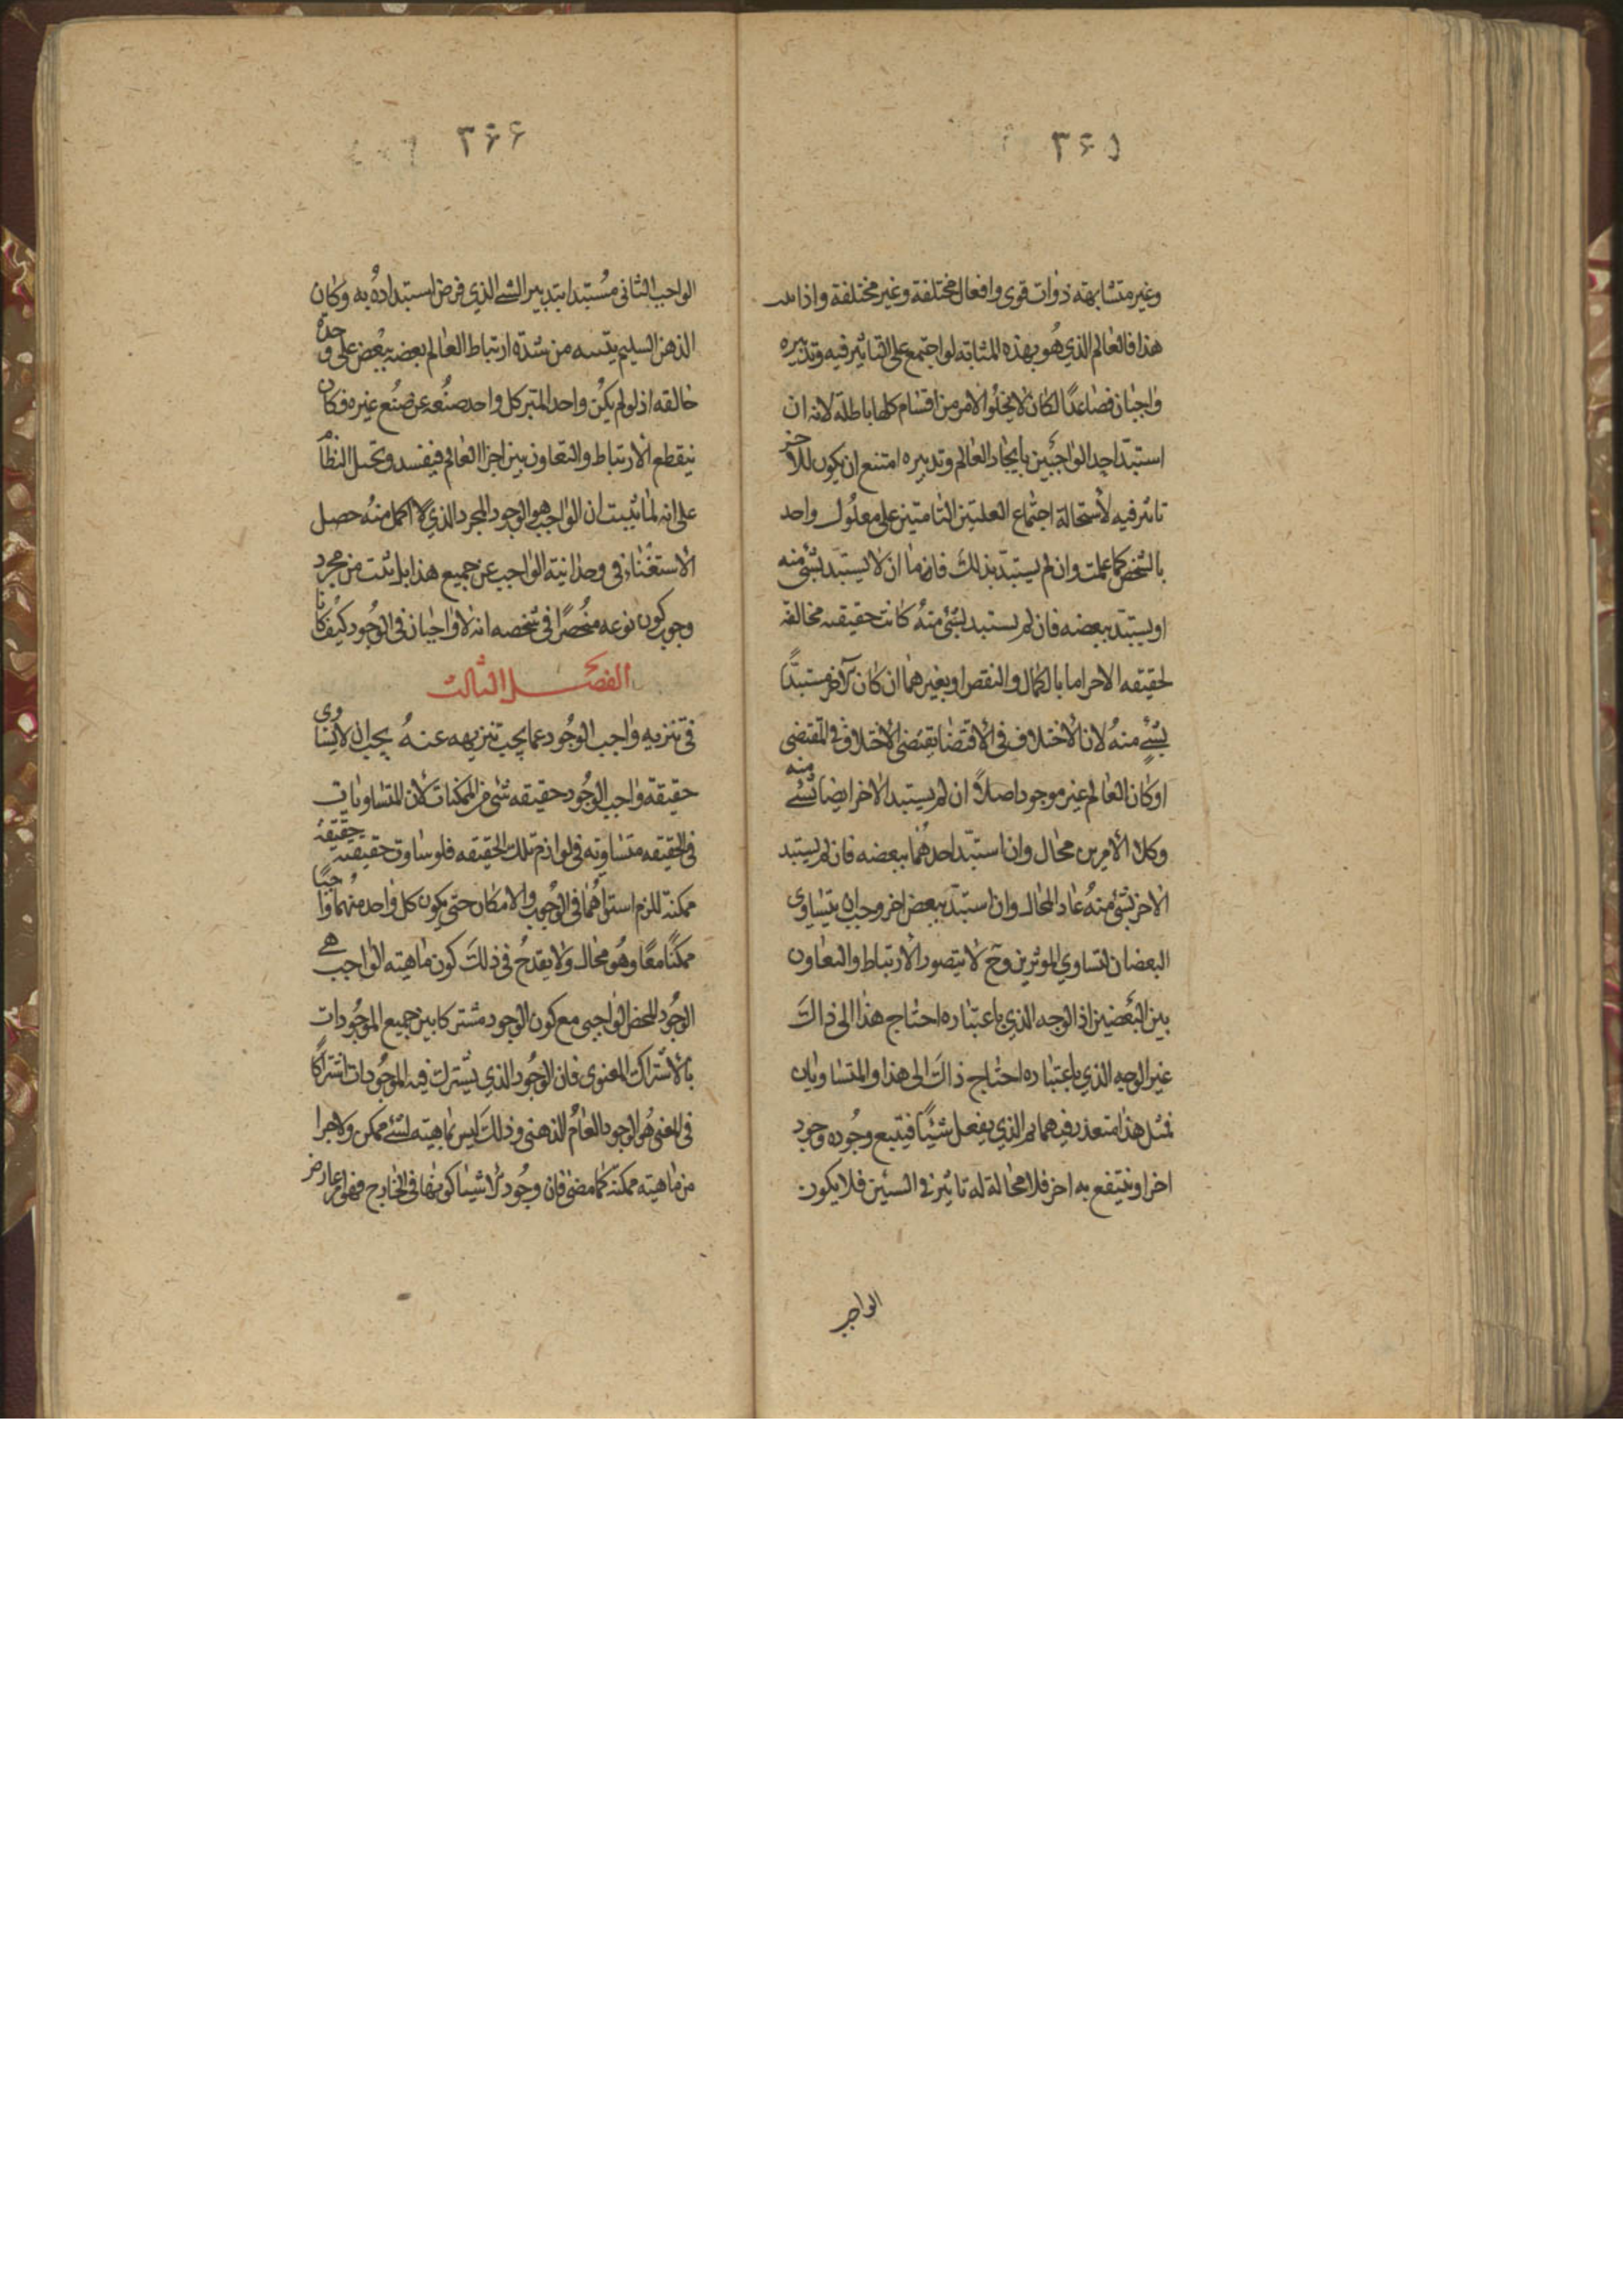 ۳۶۵
وغير متشابهته ذوات قوى وافعال مختلفة وغير مختلفة واذا
هذا فالعالم الذي هو بهذه المثابة لو اجتمع على التاثير فيه وتدبيره
واجبان فصاعدًا لكان لا يخلوا الامر من اقسام كلها باطلة لانه ان
استبدّ احد الواجبين بايجاد العالم وتدبيره امتنع ان يكون للاخر
تاثير فيه لاستحالة اجتماع العلتين التامتين على معلول واحد
بالشخص كما علمت وان لم يستبدّ بذلك فاما ان لا يستبد بشئ منه
او يستبدّ ببعضه فان لم يستبد بشئ منه كانت حقيقته مخالفة
لحقيقه الاخر اما بالكمال والنقص او بغيرهما ان كان الآخر مستبدًا
بشئ منه لان الاختلاف في الاقتضا يقتضي الاختلاف في المقتضى
او كان العالم غير موجود اصلاً ان لم يستبد الاخر ايضا بشئ منه
وكلا الامرين محال وان استبدّ احدهما ببعضه فان لم يستبد
الاخر بشئ منه عاد المحال وان استبدّ ببعض اخر وجب ان يتساوى
البعضان لتساوي الموثرين وح لا يتصور الارتباط والتعاون
بين البعضين اذ الوجه الذي باعتباره احتاج هذا الى ذاك
غير الوجه الذي باعتباره احتاج ذاك الى هذا والمتساويان
فمثل هذا متعذر فيهما ثم الذي يفعل شيئًا فيتبع وجوده وجود
اخر او ينتفع به اخر فلا محالة له تاثير في الشيئين فلا يكون
الواجب
۳۶۶
الواجب الثاني مستبدا بتدبير الشئ الذي فرض استبداده به وكان
الذهن السليم يتنبه من شدة ارتباط العالم بعضه ببعض على وحدة
خالقه اذ لو لم يكن واحد المتيز كل واحد صنعه عن صنع غيره فكان
ينقطع الارتباط والتعاون بين اجزا العالم فيفسد ويختل النظام
على انه لما ثبت ان الواجب هو الوجود المجرد الذي لا اكمل منه حصل
الاستغناء في وحدانية الواجب عن جميع هذا بل يثبت من مجرد
وجوب كون نوعه منحصرًا في شخصه انه لا واجبان في الوجود كيف كانا
الفصل الثالث
في تنزيه واجب الوجود عما يجب تنزيهه عنه يجب ان لا يساوى
حقيقة واجب الوجود حقيقه شئ من الممكنات لان المتساويات
في الحقيقه متساوية في لوازم تلك الحقيقه فلو ساوت حقيقته حقيقة
ممكنة للزم استواهما في الوجوب والامكان حتى يكون كل واحد منهما واجبًا
ممكنًا معًا وهو محال ولا يقدح في ذلك كون ماهيته الواجب هي
الوجود المحض الواجبي مع كون الوجود مشتركا بين جميع الموجودات
بالاشتراك المعنوى فان الوجود الذي يشترك فيه الموجودات اشتراكًا
في المعنى هو الوجود العام الذهني وذلك ليس بماهيته لشئ ممكن ولا جزا
من ماهيته ممكنة كما مضى فان وجود الاشيا كونها في الخارج فهو امر عارض